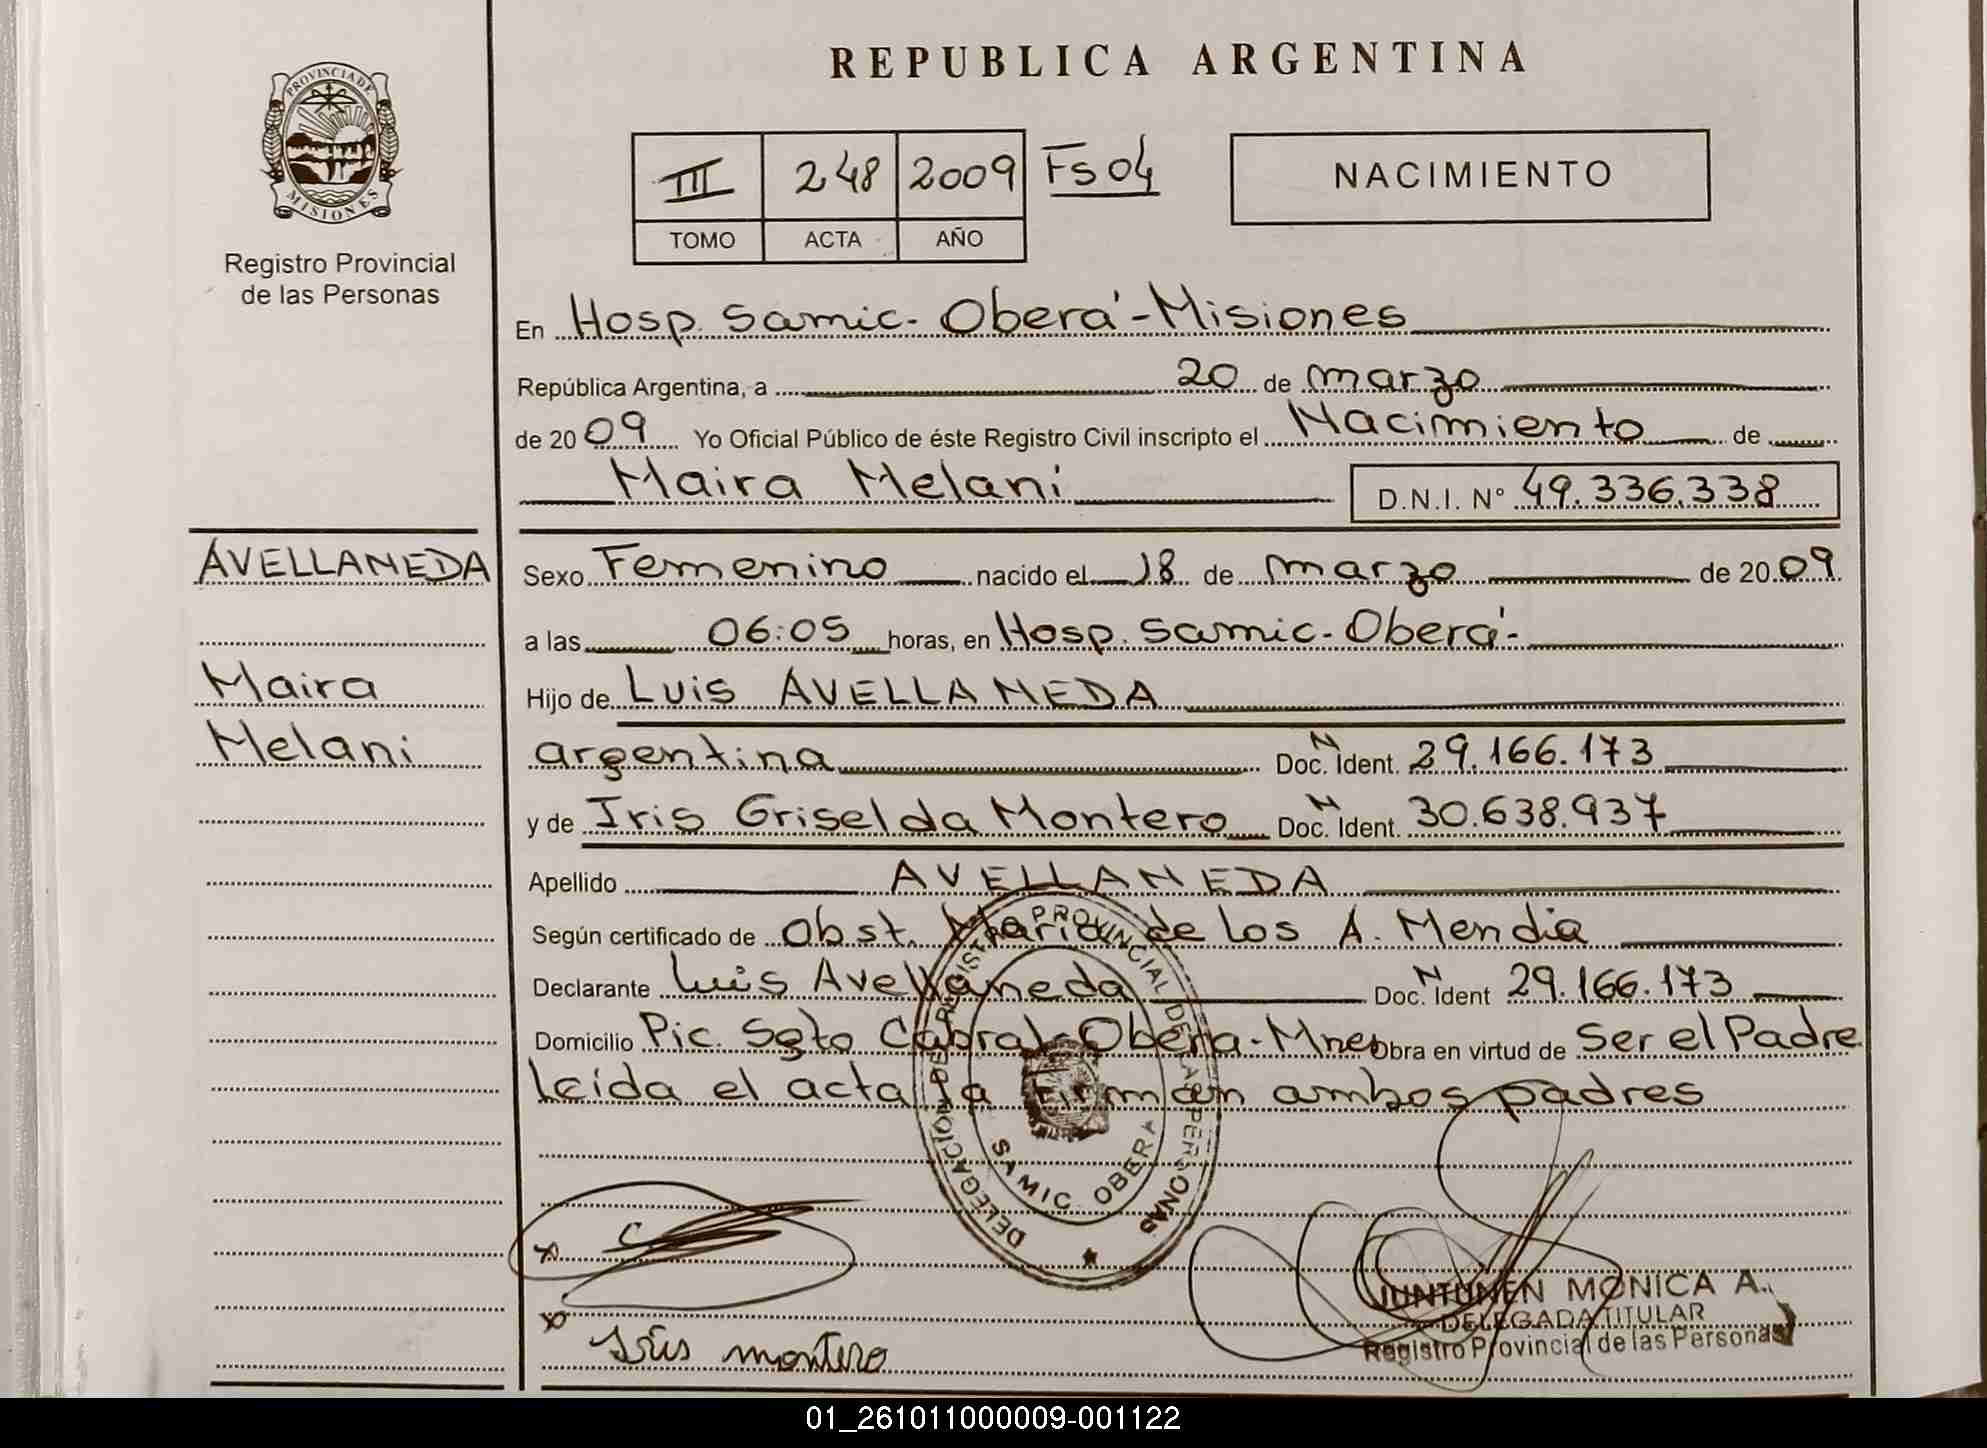 REPUBLICA ARGENTINA
PROVINCIA DE
MISIONES
Registro Provincial
de las Personas
III 248 2009 Fs 04
TOMO ACTA AÑO
NACIMIENTO
En Hosp. Samic - Oberá - Misiones
República Argentina, a 20 de marzo
de 2009 Yo Oficial Público de éste Registro Civil inscripto el Nacimiento de
Maira Melani D.N.I. N° 49.336.338
AVELLANEDA
Maira
Melani
Sexo Femenino nacido el 18 de marzo de 2009
a las 06:05 horas, en Hosp. Samic - Oberá -
Hijo de Luis AVELLANEDA
argentina Doc. N Ident. 29.166.173
y de Iris Griselda Montero Doc. N Ident. 30.638.937
Apellido AVELLANEDA
Según certificado de Obst. Maria de los A. Mendia
Declarante Luis Avellaneda Doc. N Ident 29.166.173
Domicilio Pic. Sgto Cabral - Oberá - Mnes Obra en virtud de Ser el Padre
Leida el acta la Firman ambos padres
DELEGACION DEL REGISTRO PROVINCIAL DE LAS PERSONAS
SAMIC OBERA
Iris montero
JUNTUNEN MONICA A.
DELEGADA TITULAR
Registro Provincial de las Personas
01_261011000009-001122